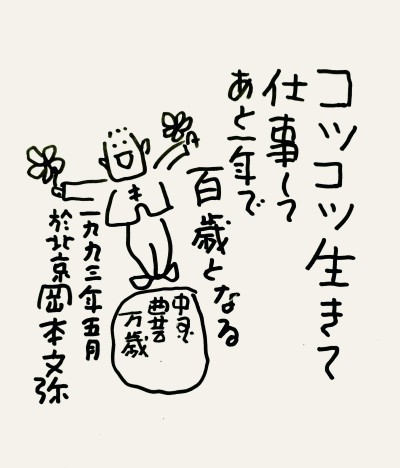 コツコツ生きて
仕事して
あと一年で
百歳となる
中国
曲芸
万歳
一九九三年五月
於北京岡本文弥